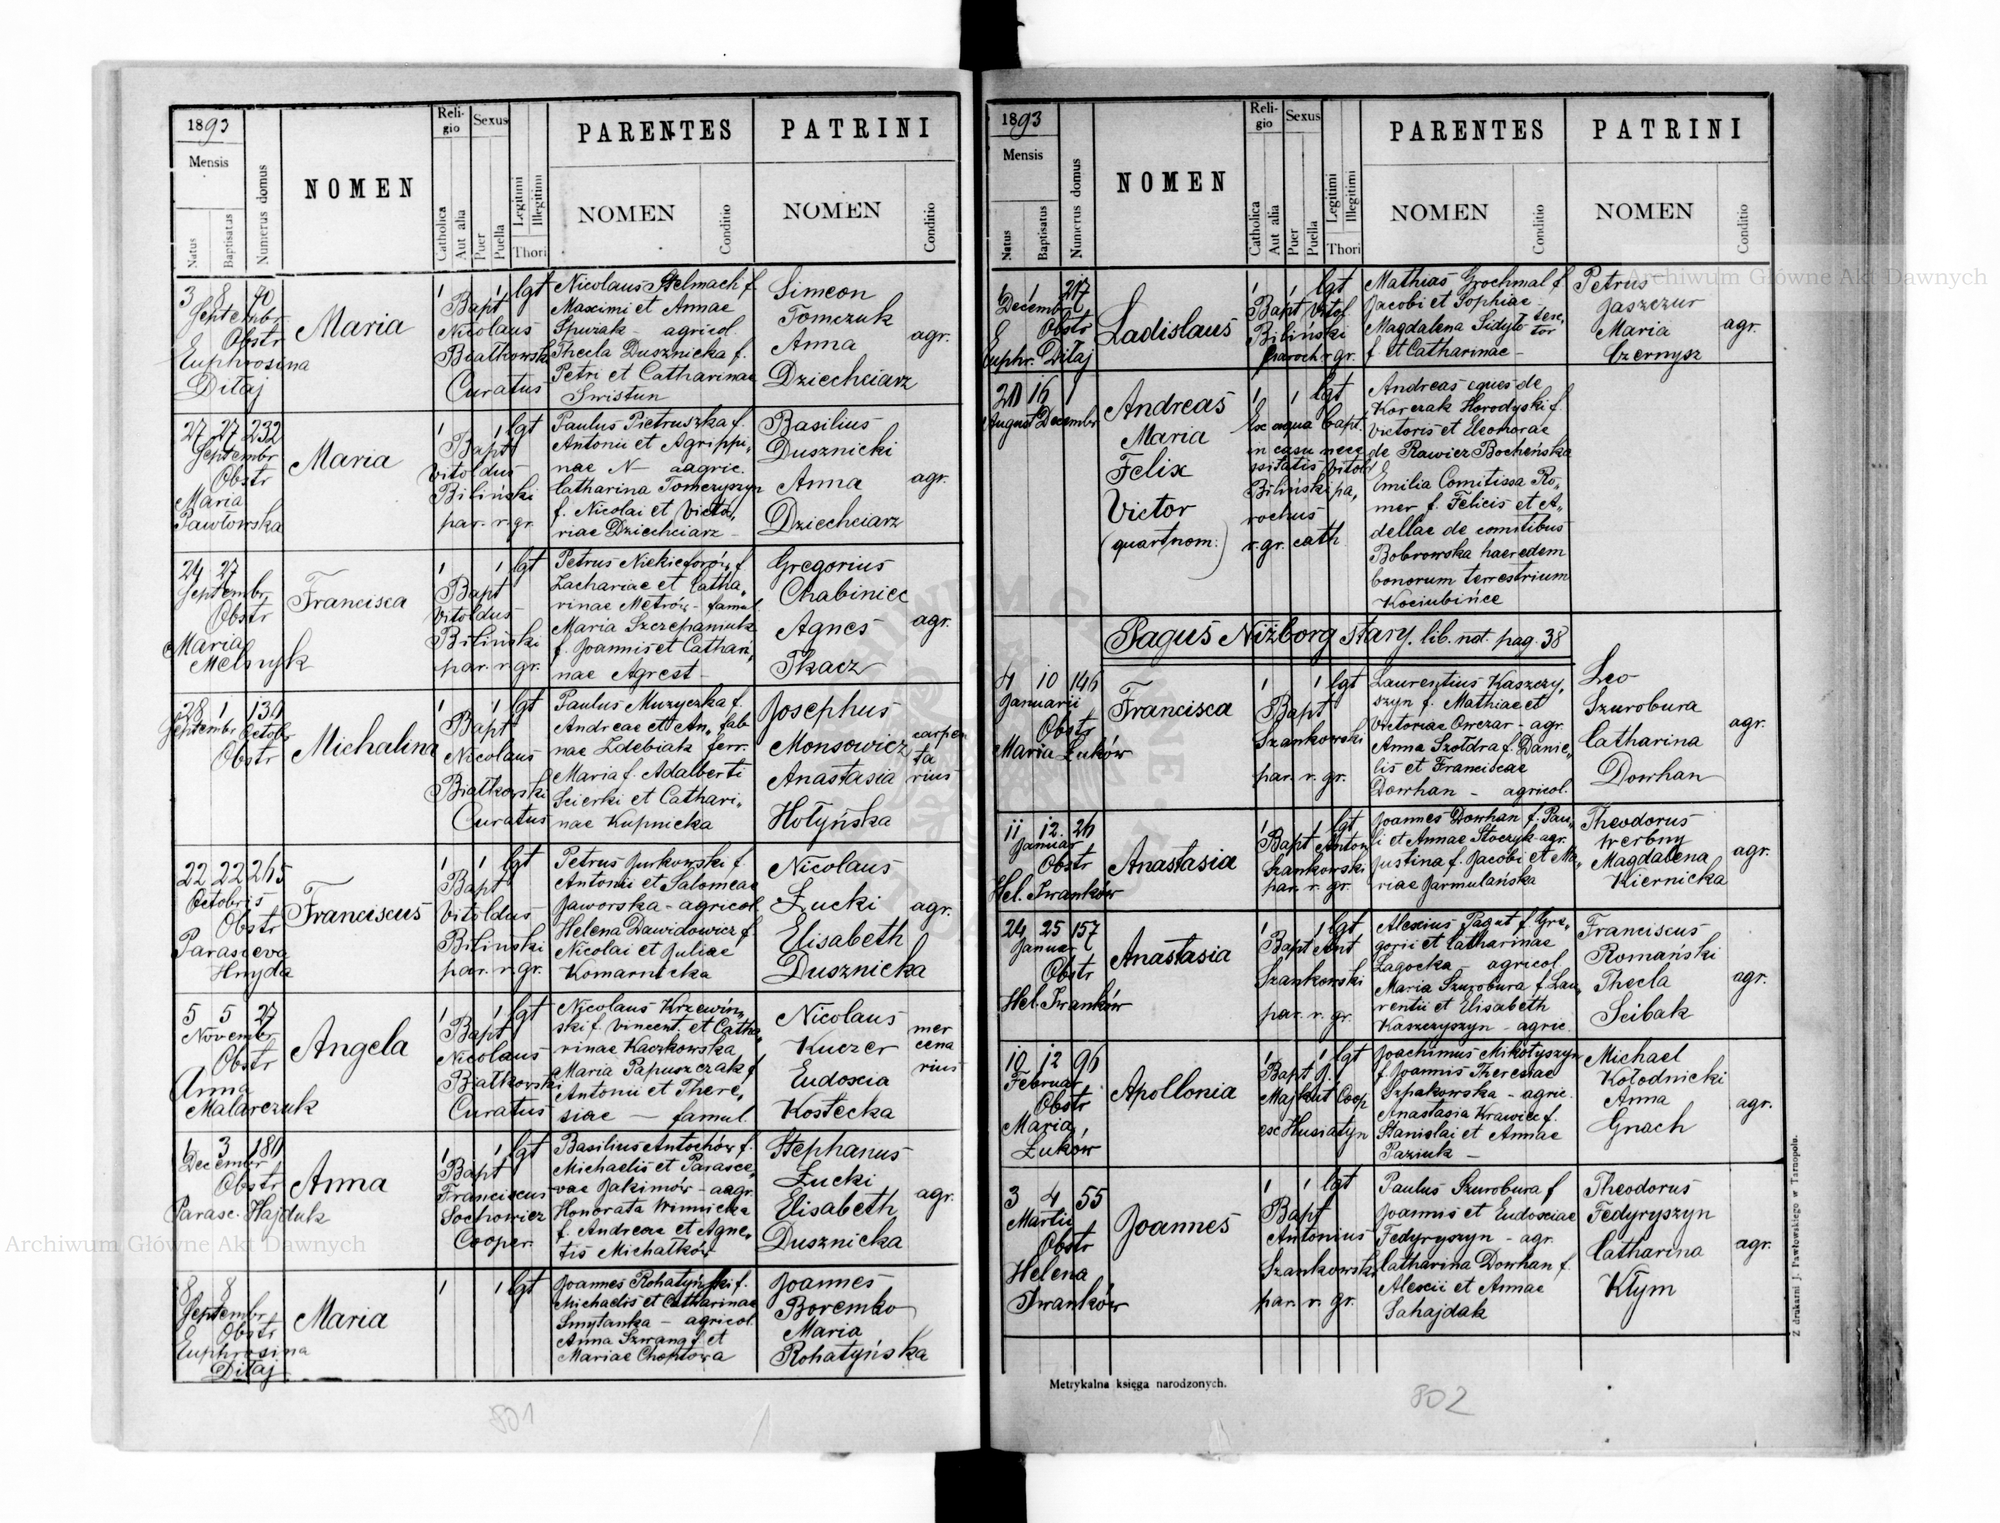 1893
Mensis
Natus
Baptisatus
Numerus domus
NOMEN
Religio
Catholica
Aut alia
Sexus
Puer
Puella
Legitimi
Illegitimi
Thori
PARENTES
NOMEN
Conditio
PATRINI
NOMEN
Conditio
3 8 40
Septembr
Obstr
Euphrosina
Ditaj
Maria
1 1 lgt
Bapt
Nicolaus
Białkowski
Curatus
Nicolaus Stelmach f.
Maximi et Annae
Spiżak - agricol
Thecla Dusznicka f.
Petri et Catharinae
Swistun
Simeon
Tomczuk
Anna
Dziechciarz
agr.
27 27 232
Septembr
Obstr
Maria
Pawłowska
Maria
1 1 lgt
Bapt
Vitoldus
Biliński
par. r. gr.
Paulus Pietruszka f.
Antonii et Agrippi„
nae N - aagric.
Catharina Tomczyszyn
f. Nicolai et Victo„
riae Dziechciarz -
Basilius
Dusznicki
Anna
Dziechciarz
agr.
24 27
Septembr
Obstr
Maria
Melnyk
Francisca
1 1 lgt
Bapt
Vitoldus
Biliński
par. r. gr.
Petrus Nickieforów f.
Zachariae et Catha„
rinae Metrów - famul
Maria Szczepaniuk
f. Joannis et Cathari„
nae Agrest -
Gregorius
Chabiniec
Agnes
Tkacz
agr.
28 1 130
Septembr Octobr
Obstr
Michalina
1 1 lgt
Bapt
Nicolaus
Białkowski
Curatus
Paulus Muzyczka f.
Andreae et An„ fab-
nae Zdebiak ferr.
Maria f. Adalberti
Scierki et Cathari„
nae Kupnicka
Josephus
Monsowicz
Anastasia
Hołyńska
carpen
ta
rius
22 22 265
Octobris
Obstr
Parasceva
Hnyda
Franciscus
1 1 lgt
Bapt
Vitoldus
Biliński
par. r. gr.
Petrus Jurkowski f.
Antonii et Salomeae
Jaworska - agricol.
Helena Dawidowicz f.
Nicolai et Juliae
Komarnicka
Nicolaus
Łucki
Elisabeth
Dusznicka
agr.
5 5 27
Novembr
Obstr
Anna
Malarczuk
Angela
1 1 lgt
Bapt
Nicolaus
Białkowski
Curatus
Nicolaus Krzewiń„
ski f. Vincent. et Catha„
rinae Kaczkowska
Maria Papuszczak f.
Antonii et There„
siae - famul.
Nicolaus
Kuczer
Eudoxia
Kostecka
mer
cena
rius
1 3 180
Decembr
Obstr
Parasc. Hajduk
Anna
1 1 lgt
Bapt
Franciscus
Sochowicz
Cooper.
Basilius Antochów f.
Michaelis et Parasce„
vae Jakimów - aagr.
Honorata Winnicka
f. Andreae et Agne„
tis Michałków
Stephanus
Łucki
Elisabeth
Dusznicka
agr.
8 8
Septembr
Obstr
Euphrosina
Ditaj
Maria
1 1 lgt
Joannes Rohatyński f.
Michaelis et Catharinae
Smytanka - agricol.
Anna Szwana f. et
Mariae Choptowa
Joannes
Boremko
Maria
Rohatyńska
801
1893
Mensis
Natus
Baptisatus
Numerus domus
NOMEN
Religio
Catholica
Aut alia
Sexus
Puer
Puella
Legitimi
Illegitimi
Thori
PARENTES
NOMEN
Conditio
PATRINI
NOMEN
Conditio
1 1 217
Decembr
Obstr
Euphr. Ditaj
Ladislaus
1 1 lgt
Bapt Vitol
Biliński
paroch r. gr.
Mathias Grochmal f.
Jacobi et Sophiae -
Magdalena Sidyło
f. et Catharinae -
Petrus
Jaszczur
Maria
Czernysz
agr.
16
August Decembr
Andreas
Maria
Felix
Victor
(quart nom.)
1 1 lgt
Ex aqua bapt.
in casu nece
ssitatis Vitold
Biliński pa„
rochus
r. gr. cath
Andreas eques de
Korczak Horodyski f.
Victoris et Eleonorae
de Rawicz Bocheńska
Emilia Comitissa Ro„
mer f. Felicis et A„
dellae de comitibus
Bobrowska haeredem
bonorum terrestrium
Kociubińce
Pagus Niżborg stary. lib. nat. pag. 38
4 10 146
Januarii
Obstr
Maria Łuków
Francisca
1 1 lgt
Bapt
Szankowski
par. r. gr.
Laurentius Kaszczy„
szyn f. Mathiae et
Victoriae Owczar - agr.
Anna Szołdra f. Danie„
lis et Franciscae
Dowhan - agricol.
Leo
Szurobura
Catharina
Dowhan
agr.
11 12 26
Januar
Obstr
Hel. Iwanków
Anastasia
1 1 lgt
Bapt Anton
Szankowski
par. r. gr.
Joannes Dowhan f. Pau„
li et Annae Stoczyk - agr.
Justina f. Jacobi et Ma„
riae Jarmulańska
Theodorus
Werbny
Magdalena
Kiernicka
agr.
24 25 157
Januar
Obstr
Hel. Iwanków
Anastasia
1 1 lgt
Bapt Ant
Szankowski
par. r. gr.
Alexius Pagut f. Gre„
gorii et Catharinae
Zagocka - agricol.
Maria Szurobura f. Lau„
rentii et Elisabeth
Kaszczyszyn - agric.
Franciscus
Romański
Thecla
Scibak
agr.
10 12 96
Februar
Obstr
Maria
Łuków
Apollonia
1 1 lgt
Bapt J.
Majkut Coop
ex Husiatyn
Joachimus Mikołyszyn
f. Joannis Theresiae
Szpakowska - agric.
Anastasia Krawiec f.
Stanislai et Annae
Paziuk -
Michael
Kołodnicki
Anna
Gnach
agr.
3 4 55
Martii
Obstr
Helena
Iwanków
Joannes
1 1 lgt
Bapt
Antonius
Szankowski
par. r. gr.
Paulus Szurobura f
Joannis et Eudoxiae
Fedyryszyn - agr.
Catharina Dowhan f.
Alexii et Annae
Sahajdak
Theodorus
Fedyryszyn
Catharina
Kłym
agr.
Metrykalna księga narodzonych.
802
Z drukarni J. Pawłowskiego w Tarnopolu.
Archiwum Główne Akt Dawnych
Archiwum Główne Akt Dawnych